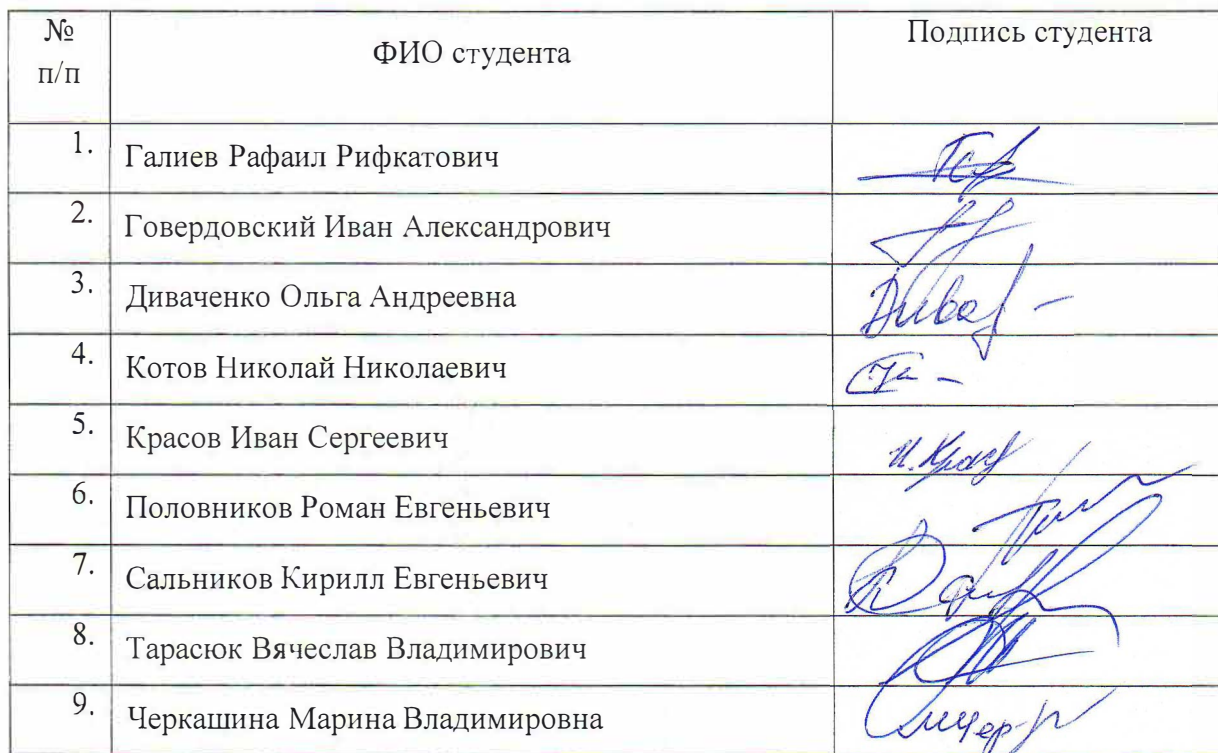 № п/п ФИО студента Подпись студента
1. Галиев Рафаил Рифкатович
2. Говердовский Иван Александрович
3. Диваченко Ольга Андреевна
4. Котов Николай Николаевич
5. Красов Иван Сергеевич
6. Половников Роман Евгеньевич
7. Сальников Кирилл Евгеньевич
8. Тарасюк Вячеслав Владимирович
9. Черкашина Марина Владимировна